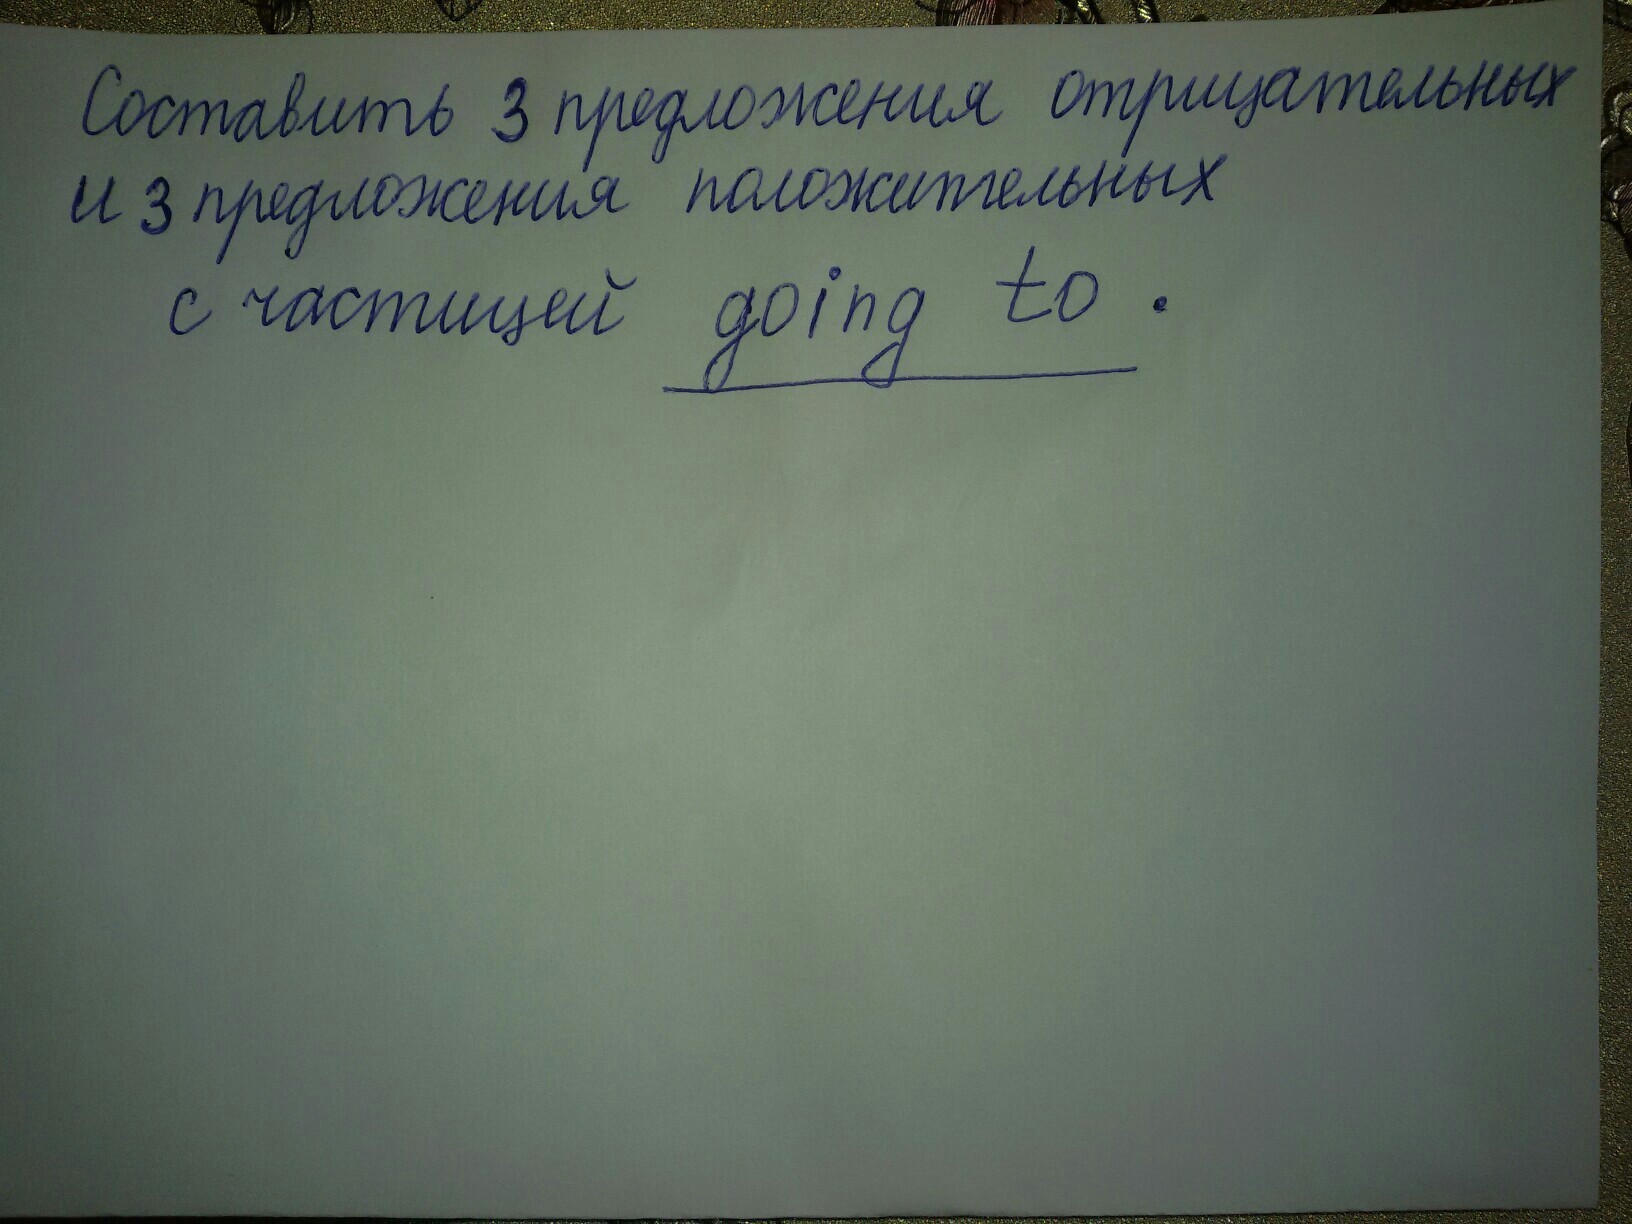 Составить 3 предложения отрицательных
и 3 предложения положительных
с частицей going to.